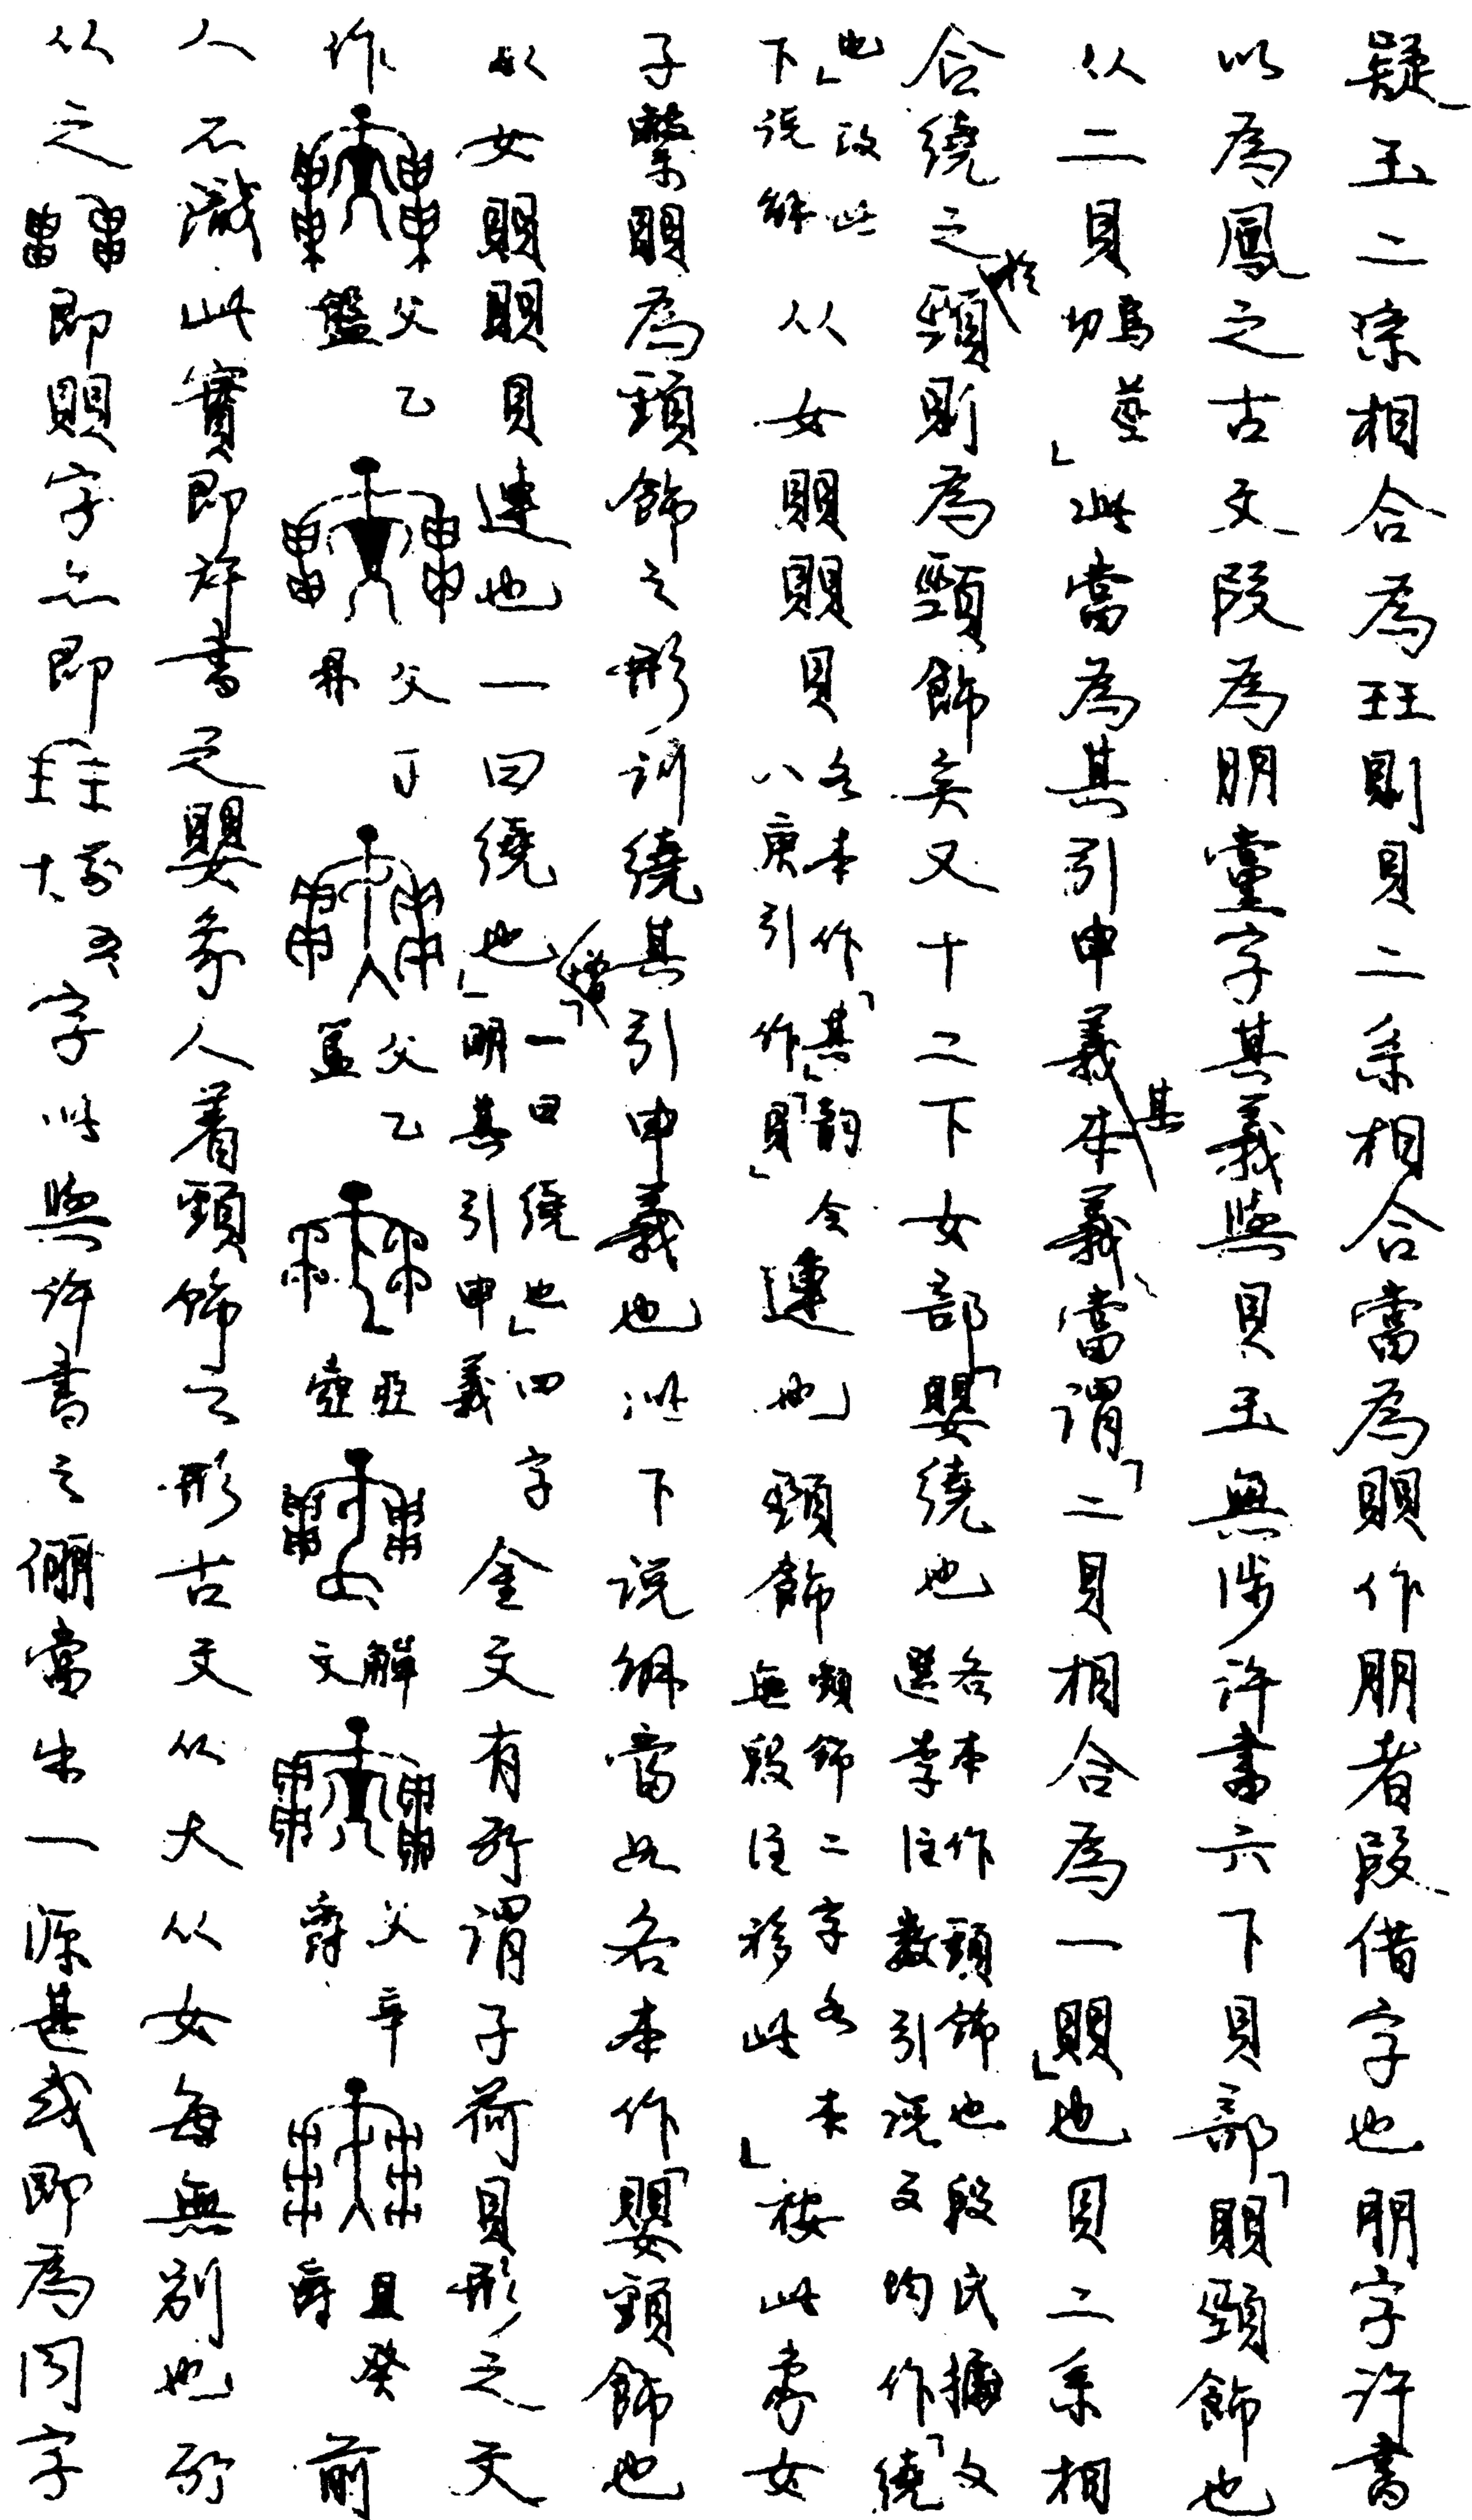 疑玉二系相合為玨則貝二系相合當為賏作朋者段借字也朋字許書
以為鳳之古文段為朋黨字其義與貝玉無涉許書六下貝部「賏頸飾也
从二貝烏莖切」此當為其引申義其本義當謂「二貝相合為一賏」也貝二系相
合繞之於頸則為頸飾矣又十二下女部「嬰繞也各本作頸飾也段氏據文選李注數引說文均作「繞
也」改此下說解从女賏賏貝各本作「其」韵會八庚引作「貝」連也頸飾頸飾二字各本無段注移此」按此象女
子繫賏為頸飾之形訓繞其引申義也以下說解當如各本作「嬰頸飾也
从女賏賏貝連也一曰繞也」增「一曰繞也」四字明其引申義金文有所謂子荷貝形之文
作父乙盤父丁鼎父乙簋亞壺觶文父辛爵且癸爵前
人不識此實即許書之嬰象人着頸飾之形古文从大从女每無別也所
从之即賏字亦即字此與許書之倗當出一源甚或即為同字